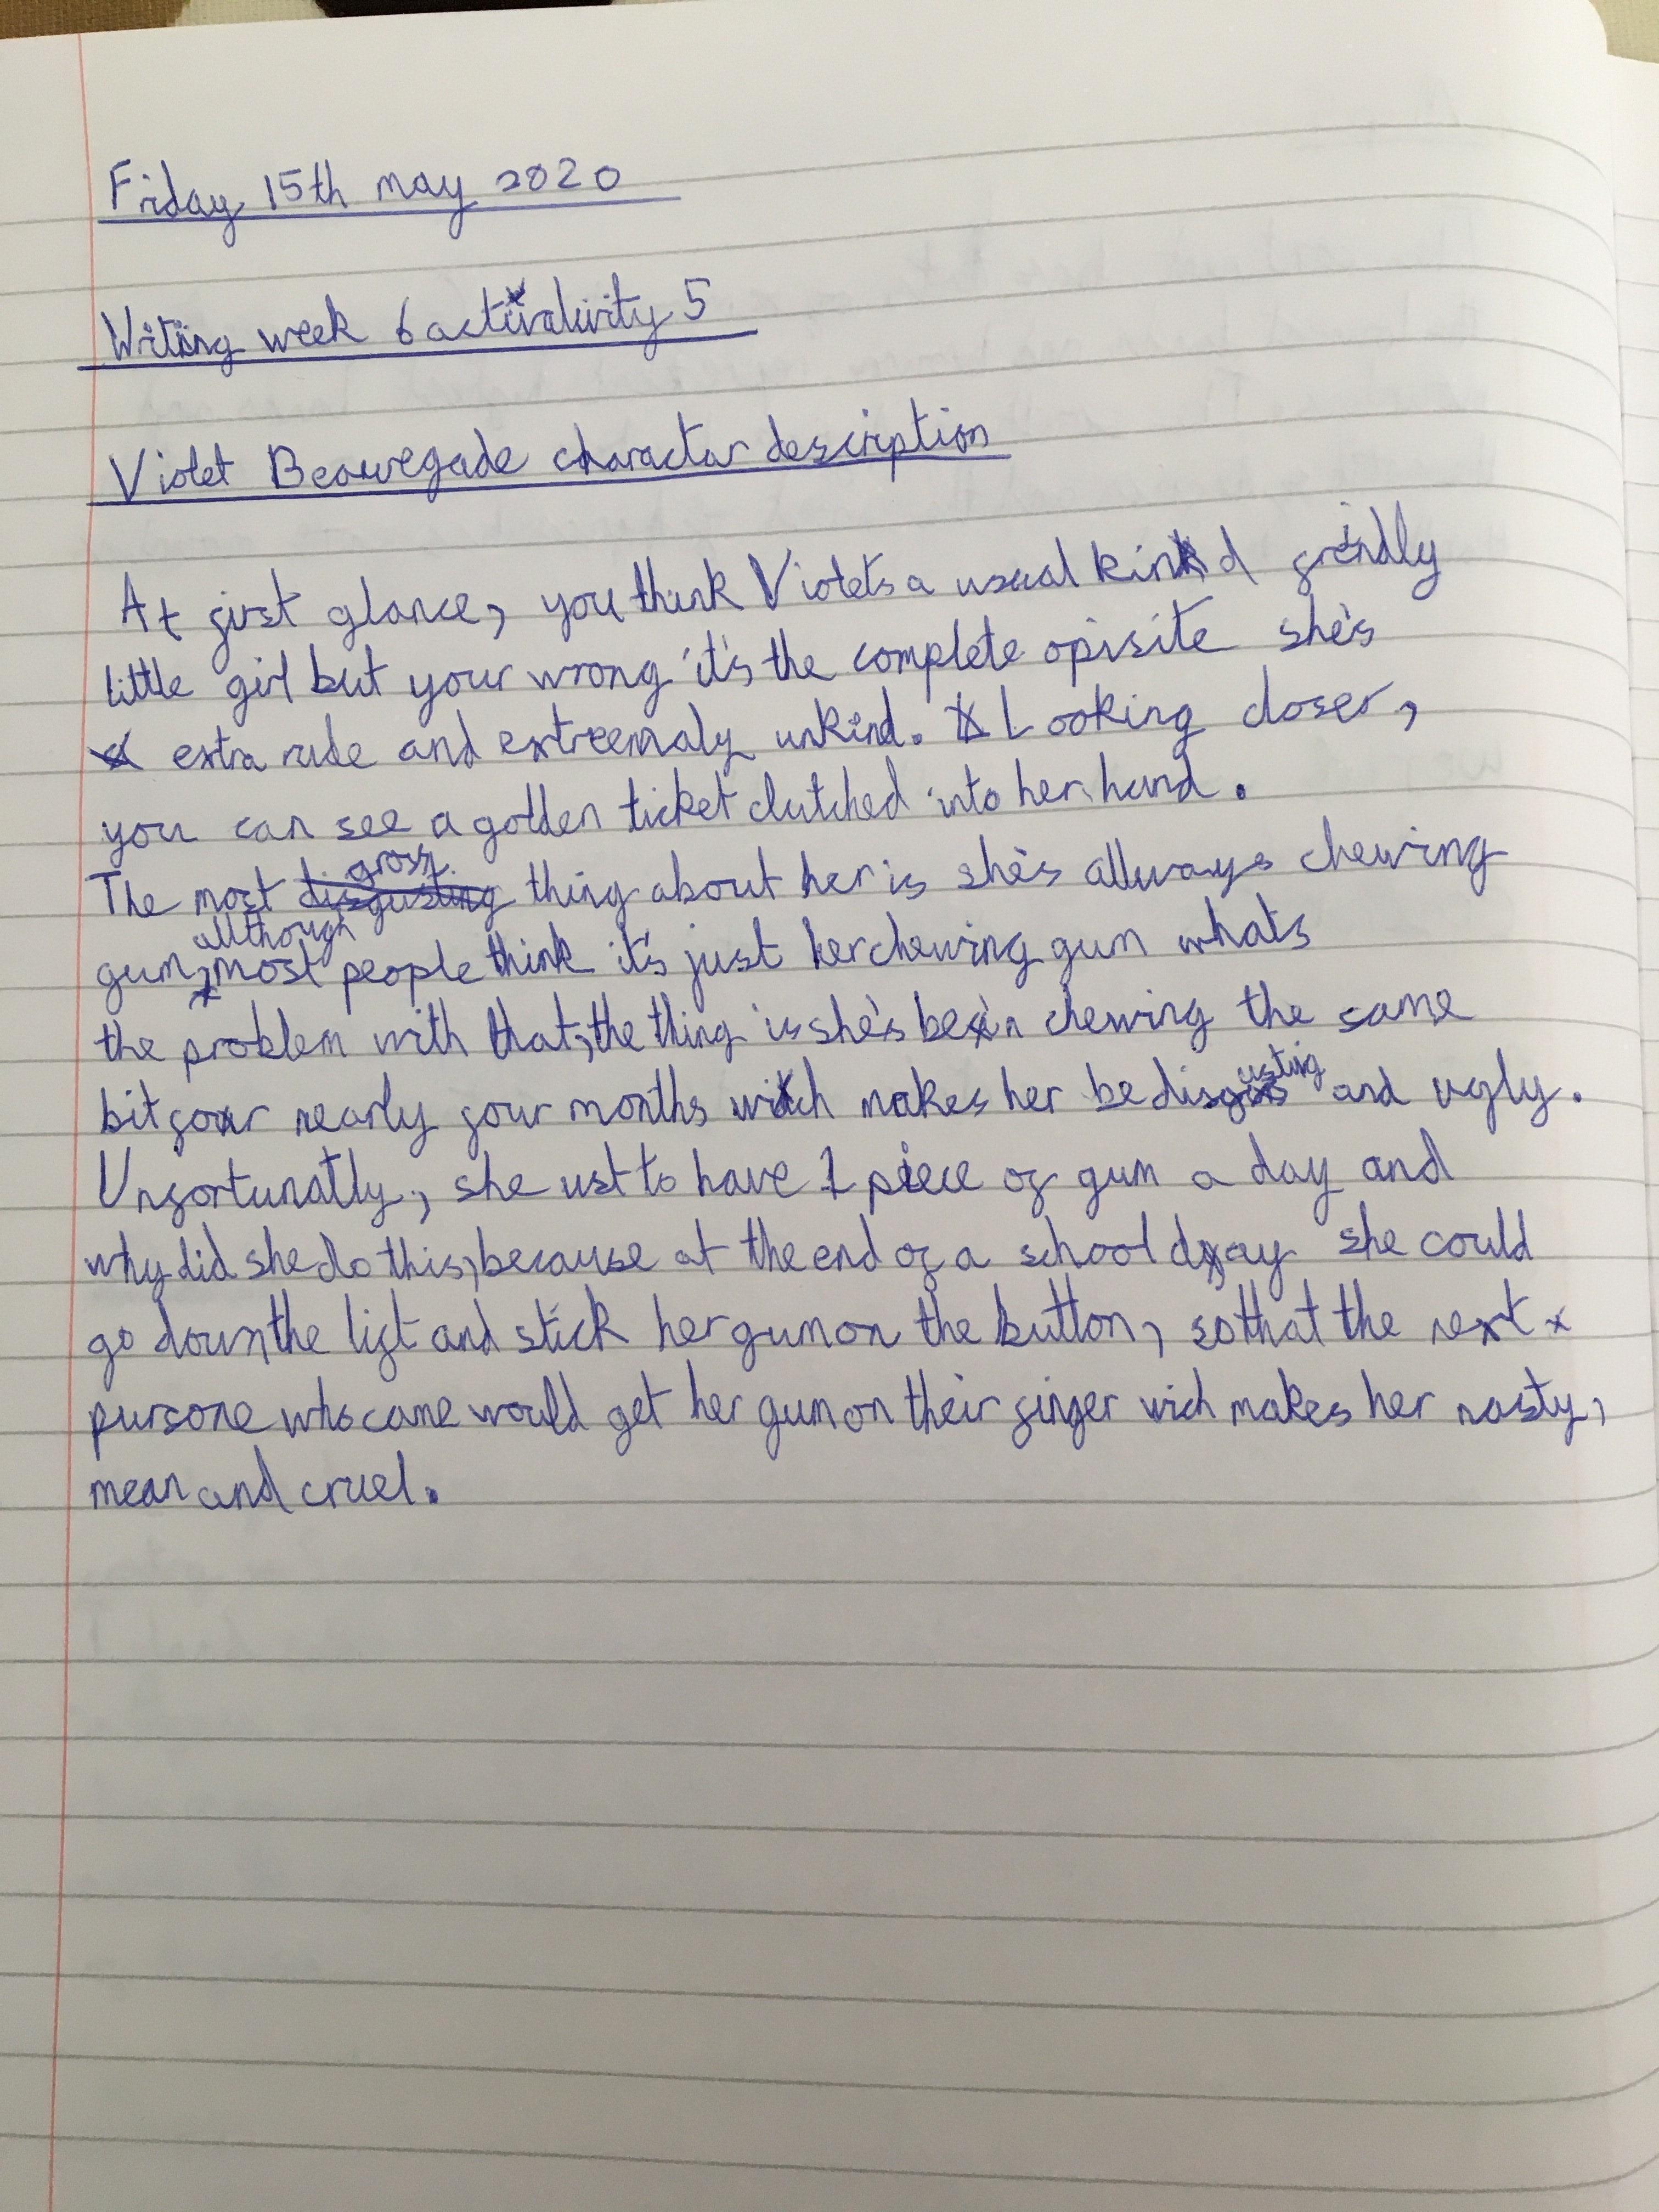 Friday 15th may 2020
Writing week 6 activity 5
Violet Beauregade character description
At first glance, you think Violet's a usual kind frindly
little girl but your wrong it's the complete opisite she's
extra rude and extreemaly unkind. Looking closer,
you can see a golden ticket clutched into her hand.
The most gross thing about her is she's allways chewing
gum, allthough most people think it's just her chewing gum whats
the problem with that, the thing is she's bein chewing the same
bit for nearly four months wich makes her be disgusting and ugly.
Unfortunatly, she ust to have 1 piece of gum a day and
why did she do this, because at the end of a school day she could
go down the lift and stick her gum on the button, so that the next
pursone who came would get her gum on their finger wich makes her nasty,
mean and cruel.